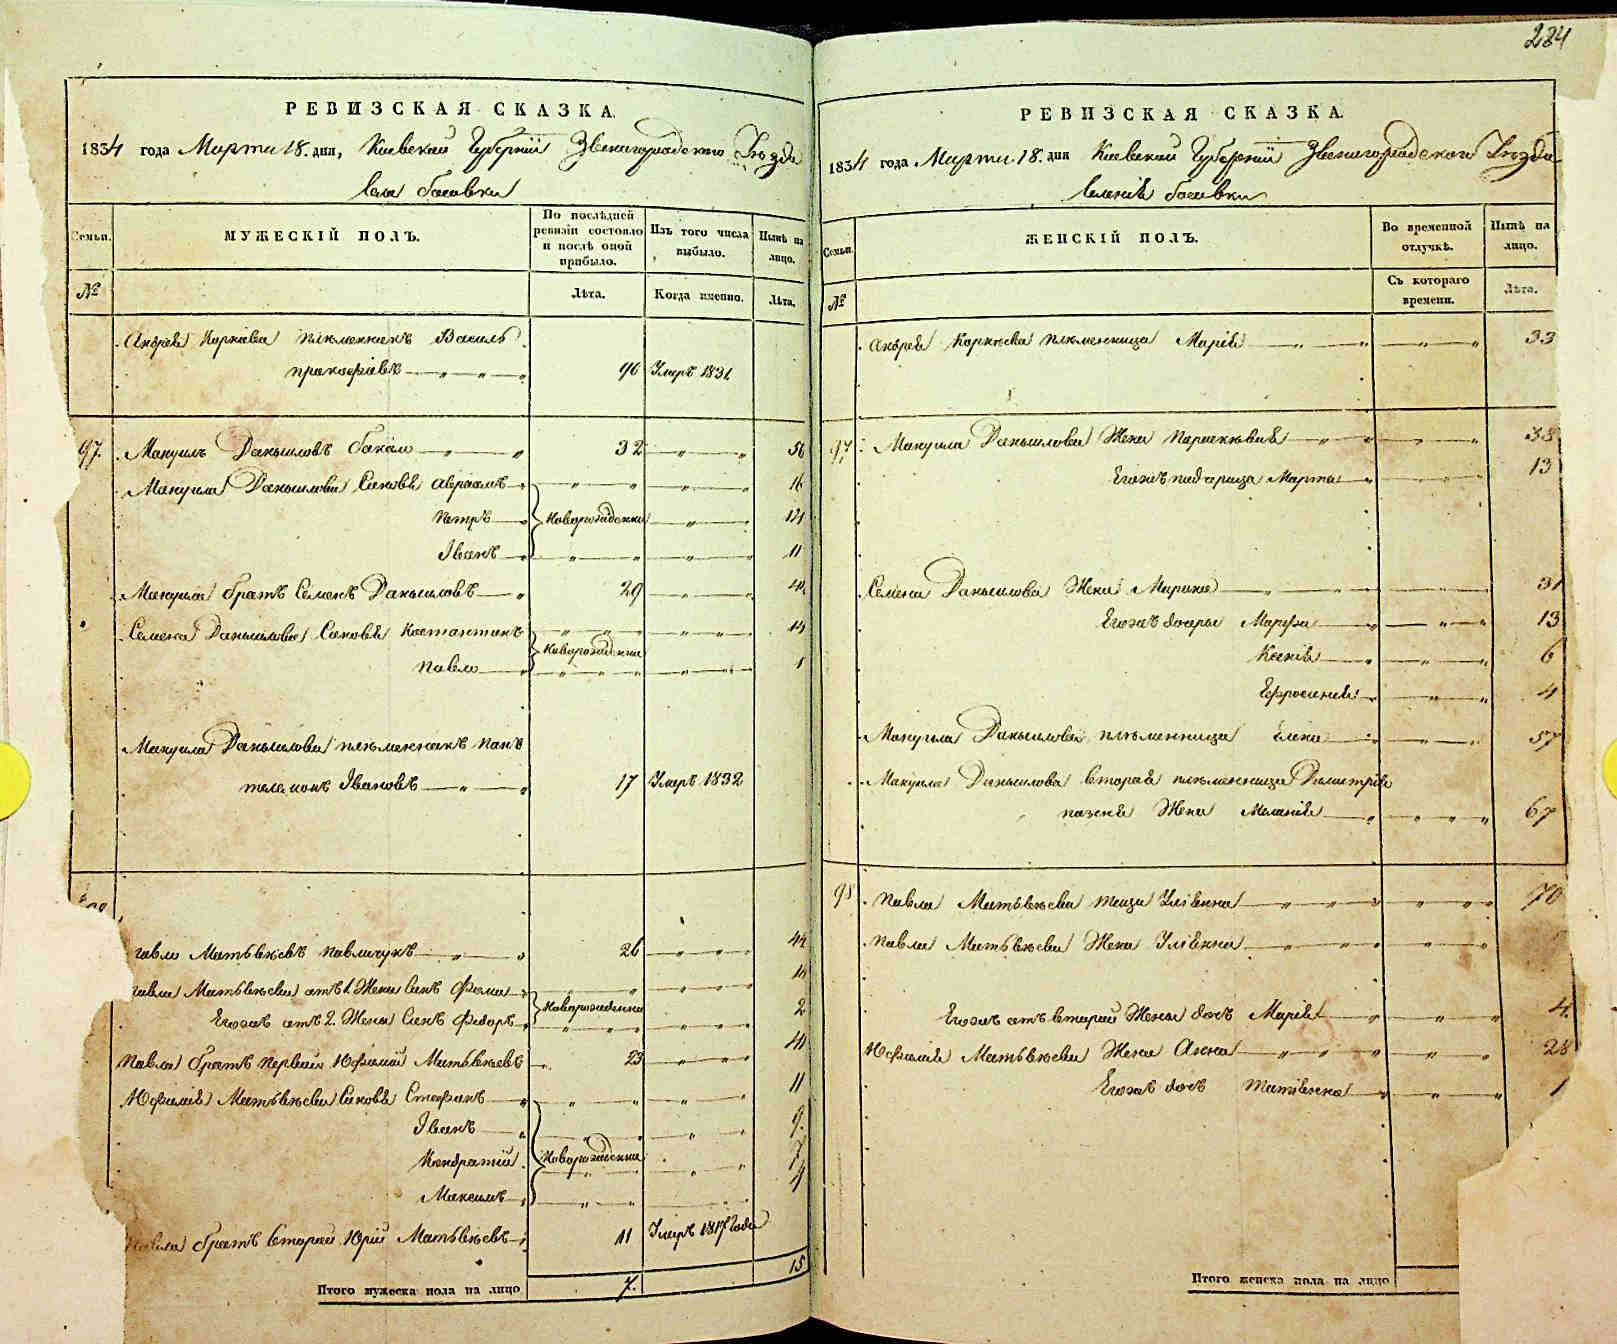 284
РЕВИЗСКАЯ СКАЗКА.
1834 года Марта 18. дня, Киевской Губернии Звенигородского Уезда
Села Босовки
Семьи.
МУЖЕСКІЙ ПОЛЪ.
По послѣдней ревизіи состояло и послѣ оной прибыло.
Изъ того числа выбыло.
Нынѣ на лицо.
№
Лѣта.
Когда именно.
Лѣта.
Андрея Корнѣева племенникъ Василь
Прокофіевъ 96 Умръ 1831
97. Мануилъ Даньиловъ 32 56
Мануила Даньилова Сыновѣ Авраамъ 16
Петръ Новорожденни
Іванъ 11
Мануила братъ Семенъ Даньиловъ 29
Семена Даньилова Сыновѣ Костантинъ
Новорожденни
Павло 1
Мануила Даньилова племенникъ Пан
телемонъ Івановъ 17 Умръ 1832
Матьвѣевъ Павличукъ 26 44
Матьвѣева отъ 1. Жены Сынъ Фома
Новорожденни
Егожъ отъ 2. Жены Сынъ Федоръ 2
Павла братъ первый Юфимій Матьвѣевъ 23 40
Юфимія Матьвѣева Сыновѣ Стефанъ 11
Іванъ 9.
Кондратій Новорожденни 7
Максимъ 4
Павла братъ второй Юрій Матьвѣевъ 11 Умръ 1817 Года
Итого мужеска пола на лицо 7. 15
РЕВИЗСКАЯ СКАЗКА.
1834 года Марта 18. дня Киевской Губернии Звенигородского Уезда
Селенія Босовки
Семьи.
ЖЕНСКІЙ ПОЛЪ.
Во временной отлучкѣ.
Нынѣ на лицо.
№
Съ котораго времени.
Лѣта.
Андрея Корнѣева племенница Марія 33
97. Мануила Даньилова Жена Парасковія 38
Егожъ падчерица Марта 13
Семена Даньилова Жена Марина 31
Егожъ дочры Марфа 13
Ксенія 6
Ефросинія 4
Мануила Даньилова племенница Елена 57
Мануила Даньилова вторая племенница Димитрія
Жена Меланія 67
98 Павла Матьвѣева теща Уліянна 70
Павла Матьвѣева Жена Уліянна
Егожъ отъ второй Жены дочъ Марія 4.
Юфимія Матьвѣева Жена Анна 28
Егожъ дочъ Татіянна 1
Итого женска пола на лицо